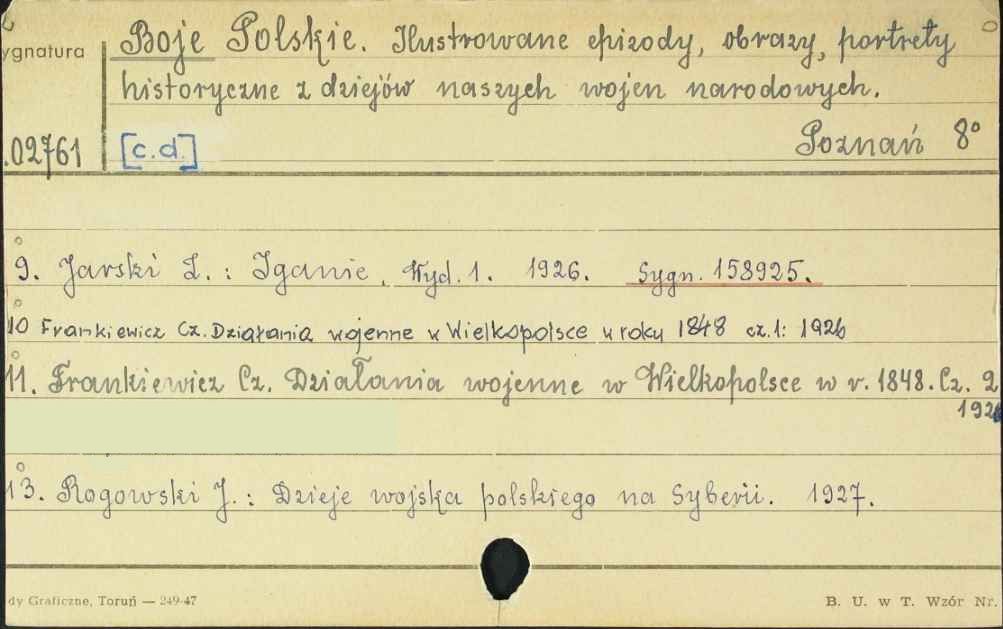 ygnatura
Boje Polskie. Ilustrowane epizody, obrazy, portrety
historyczne z dziejów naszych wojen narodowych.
.02761 [c.d.] Poznań 8°
9. Jarski L.: Iganie. Wyd. 1. 1926. Sygn. 158925.
10 Frankiewicz Cz. Działania wojenne w Wielkopolsce w roku 1848 cz. 1: 1926
11. Frankiewicz Cz. Działania wojenne w Wielkopolsce w r. 1848. Cz. 2
192
13. Rogowski J.: Dzieje wojska polskiego na Syberii. 1927.
dy Graficzne, Toruń — 249-47 B. U. w T. Wzór Nr.